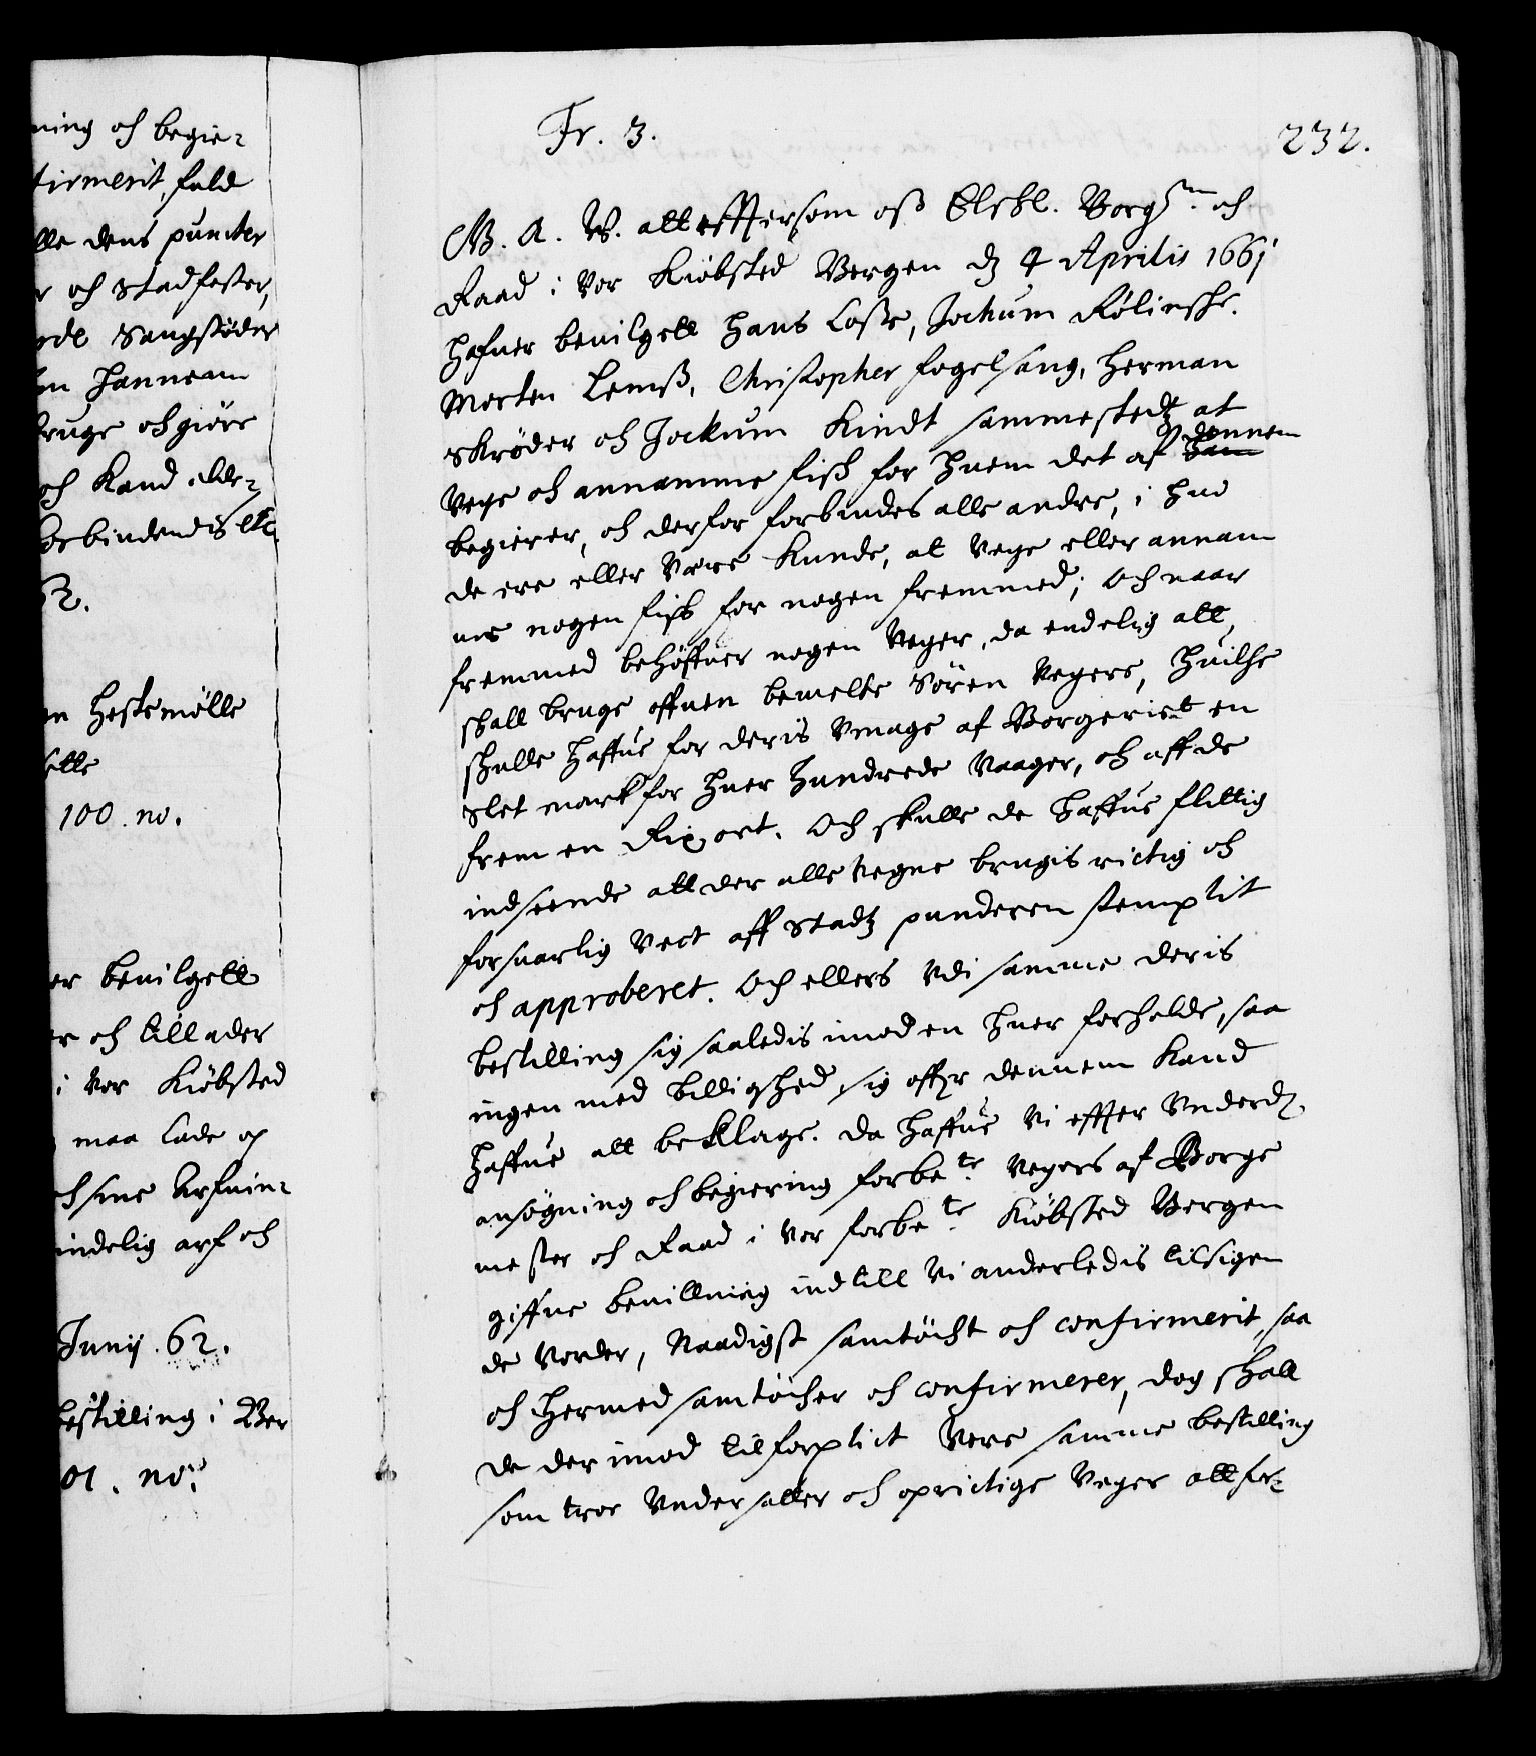 ning och begie-
firmerit, fuld
lle dens puncter
r och stadfester,
ode Sangstöder
en hannem
bruge och giöre
och Kand ilde-
forbindendis etc
62.
en Hestemölle
sette
100. no.
er bevilgett
er och tillader
i vor Kiöbsted
maa lade op
och sine Arfvin-
indelig arf och
Junij. 62.
bestilling i Ber
01. no.
Fr. 3.
232.
G. A. W. att efftersom oss Elskl. Borgm. och
Raad i vor Kiöbsted Bergen dz 4 Aprilis 1661
hafver bevilgett Hans Losse, Jochum Rölinsche.
Morten Lemss, Christopher fogelsang, Herman
Skröder och Jockum Kindt sammestedtz at
dennem
Veye och annamme fisk for hvem det af ham
begierer, och derfor forbindes alle andre, i hvo
de ere eller være kunde, at veye eller annam
me nogen fisk for nogen fremmed; Och naar
fremmed behöffver nogen Veyer, da endelig att
skall bruge offven bemelte Sören Veyere, huilche
skulle haffve for deris Vmage af Borgeriet en
slet mark for hver hundrede Vaager, och aff de
frem en Rix ort. Och skulle de haffve flittig
indseende att der alle vegne brugis rictig och
forsvarlig Vect aff Stadtz punderen stemplit
och approberet. Och ellers udi samme deris
bestilling sig saaledis imod en hver forholde, saa
ingen med billighed sig offr dennem Kand
haffve att beklage. da haffve Vi effter Vnderd.
ansögning och begiering forbete Veyers af Borge
mester och Raad i vor forbete Kiöbsted Bergen
giffne bevillning indtill Vi anderledis tilsigen
de Vorder, Naadigst samtöcht och confirmerit, saa
och hermed samtöcher och confirmerer, dog skall
de der imod tilforplict Vere samme bestilling
som troe Vndersatter och oprictige Veyer att for-